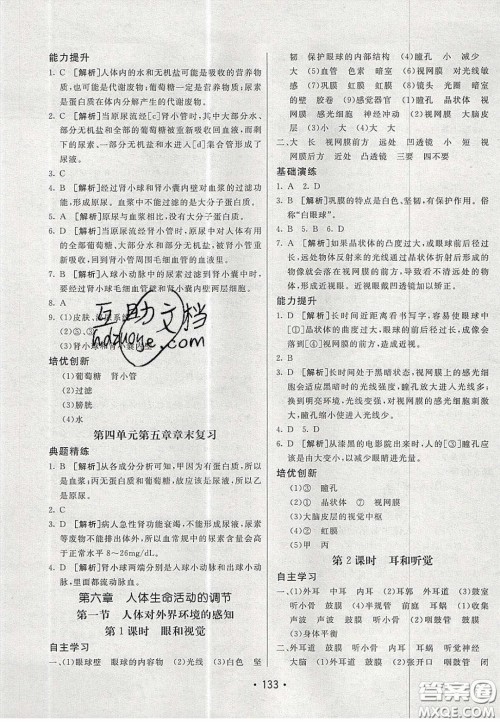 能力提升
1. C 【解析】人体内的水和无机盐是可吸收的营养物
质，也可能是代谢废物，葡萄糖一定是营养物质；尿素
是蛋白质在体内分解产生的代谢废物。
2. C 【解析】当原尿流经[c]肾小管时，其中大部分水、
部分无机盐和全部的葡萄糖被重新吸收回血液，而剩
下的水、一部分无机盐和尿素由[d]集合管形成了尿
液。
3. C
4. B 【解析】经过肾小球和肾小囊内壁对血浆的过滤功
能，形成原尿。
5. B 【解析】原尿与血浆相比，没有大分子蛋白质。
6. D 【解析】当原尿流经肾小管时，其中大部分水、部分
的全部葡萄糖、部分无机盐等被肾小管重新吸收，并
回到肾小管周围毛细血管的血液里。
7. B 【解析】人体入球小动脉中的尿素过滤到肾小囊中
需经过肾小球毛细血管壁和肾小囊内壁两层细胞。
8. A
9. (1)皮肤、
(2)⑤、③
(3)肾小球和肾小囊内壁
培优创新
(1)葡萄糖 肾小管
(2)过滤
(3)膀胱
(4)水
第四单元第五章章末复习
典题精练
1. B 【解析】从各成分分析可知，甲因为有蛋白质，所以
是血浆；丙无蛋白质但是有葡萄糖，故应该是原尿，乙
是尿液。
2. C
3. D 【解析】病人急性肾功能衰竭，不能形成尿液，尿素
等废物不能排出，所以比正常值高，血液中尿素正常
范围是8～26mg/dL。
4. C 【解析】肾小球两端分别是入球小动脉和出球小动
脉，里面都流动脉血。
第六章 人体生命活动的调节
第一节 人体对外界环境的感知
第1课时 眼和视觉
自主学习
一、(1)眼球壁 眼球的内容物 (2)光线 (3)白色 坚
韧 保护眼球的内部结构 (4)瞳孔 小 减少
大 (5)血管 色素 暗室 (6)视网膜 对光线敏
感 (7)大 小 (8)视网膜 感光 黑色 暗室
的壁 胶卷 (9)感觉器官 (1)瞳孔 晶状体
视网膜 感光 视神经 神经冲动 大脑皮层
(3)小 凸 大 大 (4)凸度
二、大 视网膜前方 远处 凹透镜 小 视网膜后
方 近处 凸透镜 三要 四不要
基础演练
1. A 2. D
3. B 【解析】巩膜的特点是白色、坚韧，有保护作用。俗称
“白眼球”。
4. B 5. B 6. D
7. D 【解析】如果晶状体的凸度过大，或眼球前后径过
长，远处物体反射来的光线，经晶状体折射后形成的
物像就会落在视网膜的前方，因而不能看清远处的物
体，形成近视眼。近视眼戴凹透镜矫正。
能力提升
1. D 【解析】长时间近距离看书写字，容易使晶状体凸
度过大，成像落在视网膜的前方，导致近视。
2. B
3. B 【解析】长时间处于黑暗的情况下，视网膜上的感光
细胞会适应黑暗时的感光度，瞳孔放大以进入更多的
光线；突然接受太强的光照，视网膜的感光细胞刺激
会很大，瞳孔缩小，减少光线。
4. D 5. A
6. D 【解析】从漆黑的电影院出来时，[③]瞳孔应变小，
避免光线强，对视网膜的感光细胞造成损伤。
培优创新
(1)③ 瞳孔
(2)① 晶状体 ⑦ 视网膜
(3)大脑皮层的视觉中枢
(4)② 角膜
第2课时 耳和听觉
自主学习
一、(1)外耳 中耳 内耳 耳郭 外耳道 鼓膜 鼓室
听小骨 半规管 前庭 耳蜗 咽鼓管 (2)收集
声波 声波 声波 振动 (3)外耳道 鼓膜
听小骨 耳蜗 大脑
二、外耳道 鼓膜 听小骨 鼓膜 张嘴 咽鼓管 闭
嘴 双手堵耳 (1)尖锐 外耳道 (2)咽鼓管 中
· 133 ·
互助文档
hdzuoye.com
答案圈
MXQE.COM